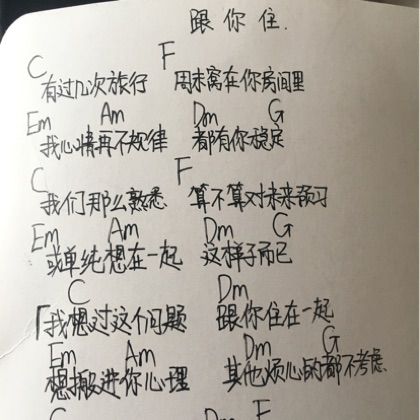 跟你住.
C F
有过几次旅行 周末窝在你房间里
Em Am Dm G
我心情再不规律 都有你稳定
C F
我们那么熟悉 算不算对未来预习
Em Am Dm G
或单纯想在一起 这样子而已
C Dm
「我想过这个问题 跟你住在一起
Em Am Dm G
想搬进你心理 其他烦心的都不考虑
C Dm F